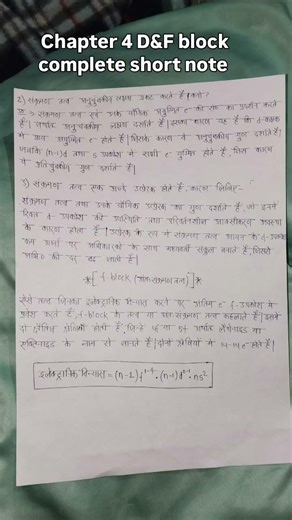 Chapter 4 D&F block
complete short note
2) संक्रमण तत्व अनुचुम्बकीय लक्षण प्रकट करते हैं। क्यों?
संक्रमण तत्व एवं उनके यौगिक अयुग्मित e⁻ की
है। अर्थात अनुचुम्बकीय लक्षण दर्शाते हैं। इसका कारण यह है कि d-कक्षक
में अयुग्मित e⁻ होते हैं। जिसके कारण ये अनुचुम्बकीय गुण दर्शाते हैं।
जबकि (n-1)d तथा s उपकोश में सभी e⁻ युग्मित होते हैं, जिस कारण
ये प्रतिचुम्बकीय गुण दर्शाते हैं।
3) संक्रमण तत्व एक अच्छे उत्प्रेरक होते हैं, कारण लिखिए-
संक्रमण तत्व तथा उनके यौगिक उत्प्रेरक का गुण दर्शाते हैं, जो इनमें
रिक्त d उपकोश की उपस्थिति तथा परिवर्तनशील आक्सीकरण अवस्था
के कारण होता है। उत्प्रेरक के रूप में संक्रमण तत्व
अभिकारकों के साथ मध्यवर्ती संकुल बनाते हैं, जिससे
अभि० की दर बढ़ जाती है।
*[ f-block (अंतः संक्रमण तत्व) ]*
ऐसे तत्व जिनका इलेक्ट्रानिक विन्यास करने पर अंतिम e⁻ f-उपकोश में
प्रवेश करते हैं, f-block के तत्व या अंतः संक्रमण तत्व कहलाते हैं। इसमें
दो श्रेणियां होती हैं, जिन्हें 4f या 5f अर्थात लैंथेनाइड या
एक्टिनाइड के नाम से जानते हैं। दोनों श्रेणियों में 14-14 e⁻ होते हैं।
इलेक्ट्रानिक विन्यास = (n-2)f¹⁻¹⁴ (n-1)d⁰⁻¹ ns²